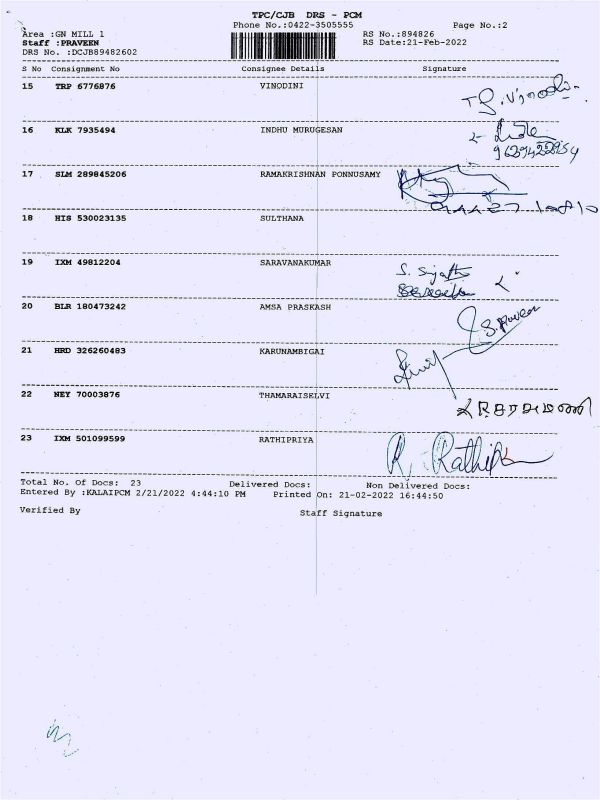 TPC/CJB DRS - PCM
Phone No.:0422-3505555 Page No.:2
Area :GN MILL 1 RS No.:894826
Staff :PRAVEEN RS Date:21-Feb-2022
DRS No. :DCJB89482602
S No Consignment No Consignee Details Signature
15 TRP 6776876 VINODINI
16 KLK 7935494 INDHU MURUGESAN
17 SLM 289845206 RAMAKRISHNAN PONNUSAMY
18 HIS 530023135 SULTHANA
19 IXM 49812204 SARAVANAKUMAR
S. Sujatha
20 BLR 180473242 AMSA PRASKASH
21 HRD 326260483 KARUNAMBIGAI
22 NEY 70003876 THAMARAISELVI
23 IXM 501099599 RATHIPRIYA
Total No. Of Docs: 23 Delivered Docs: Non Delivered Docs:
Entered By :KALAIPCM 2/21/2022 4:44:10 PM Printed On: 21-02-2022 16:44:50
Verified By Staff Signature